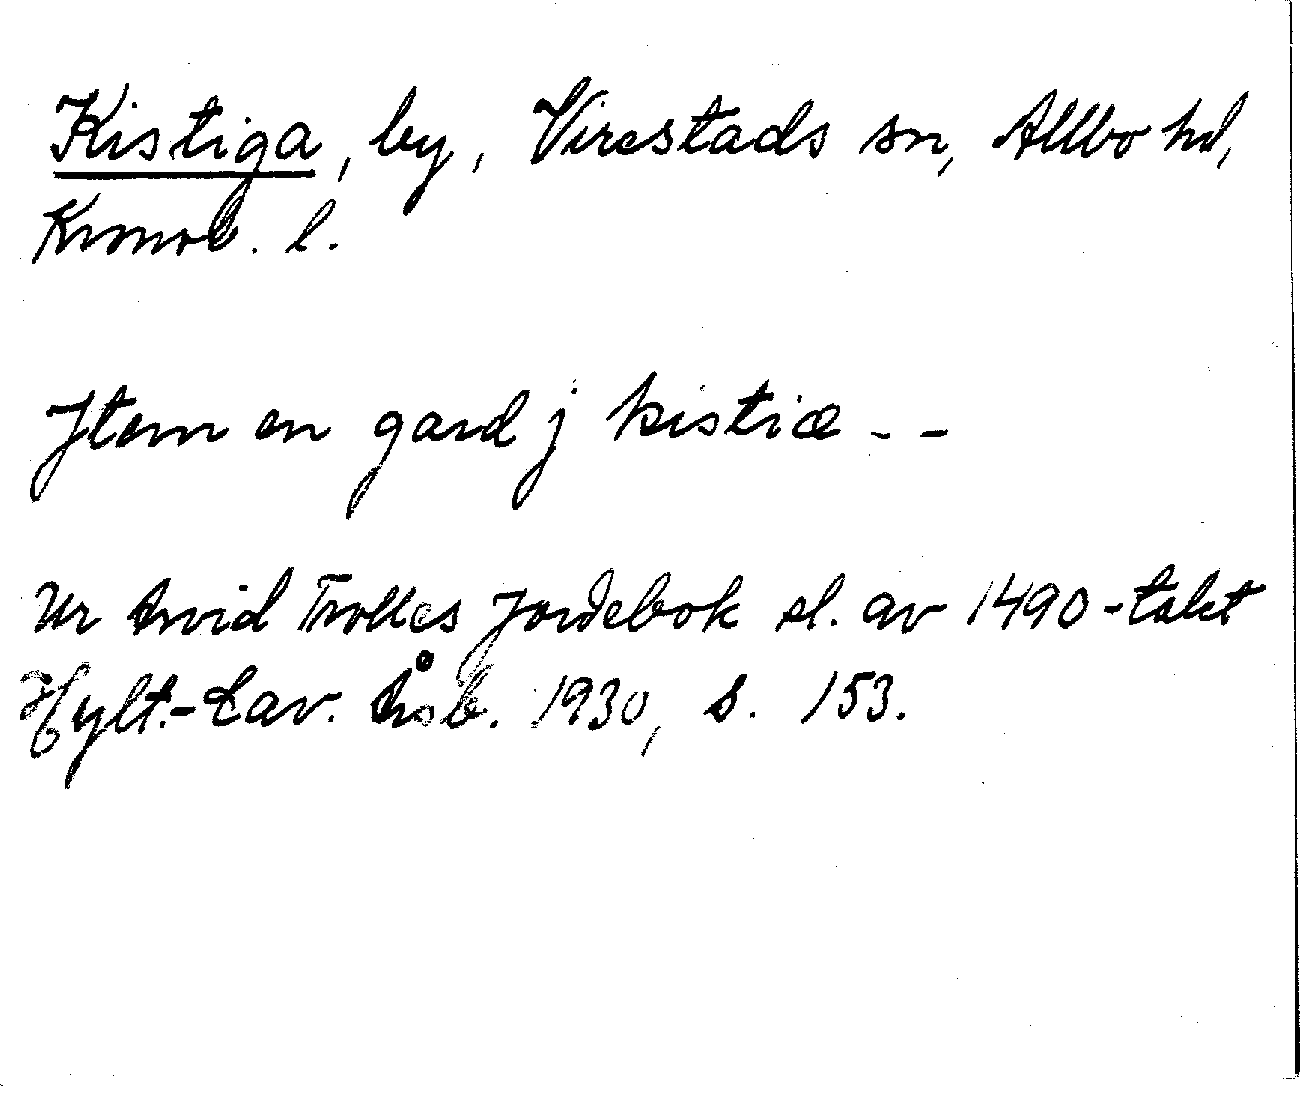 Kistiga, by, Virestads sn, Allbo hd,
Kronob. l.
Jtem en gard j kistiæ - -
Ur Arvid Trolles Jordebok sl. av 1490-talet
Hylt.-Cav. Åsb. 1930, s. 153.